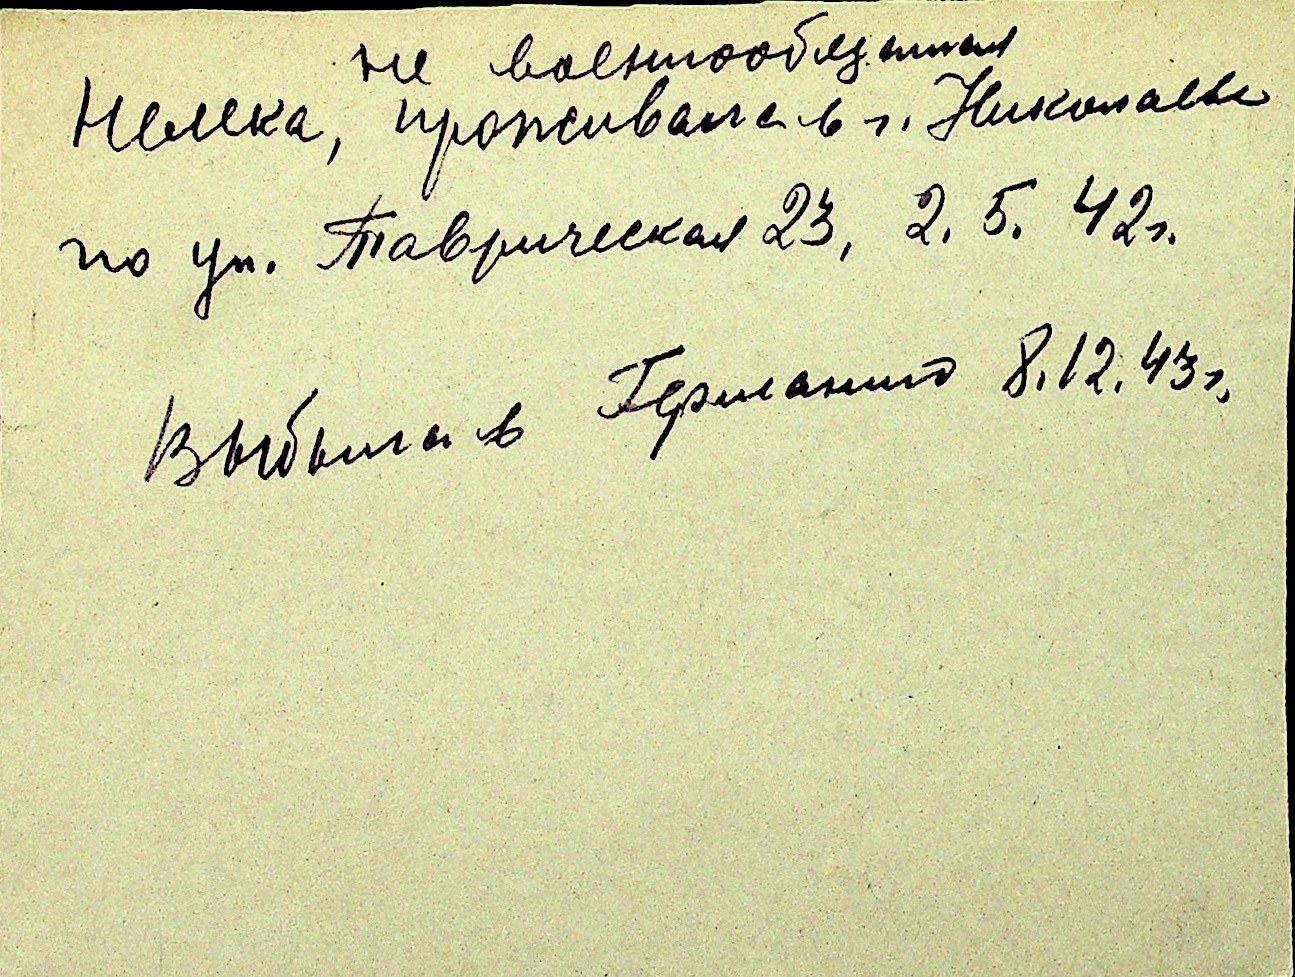 не военнообязанная
Немка, проживала в г. Николаеве
по ул. Таврическая 23, 2. 5. 42г.
Выбыла в Германию 8.12.43г.